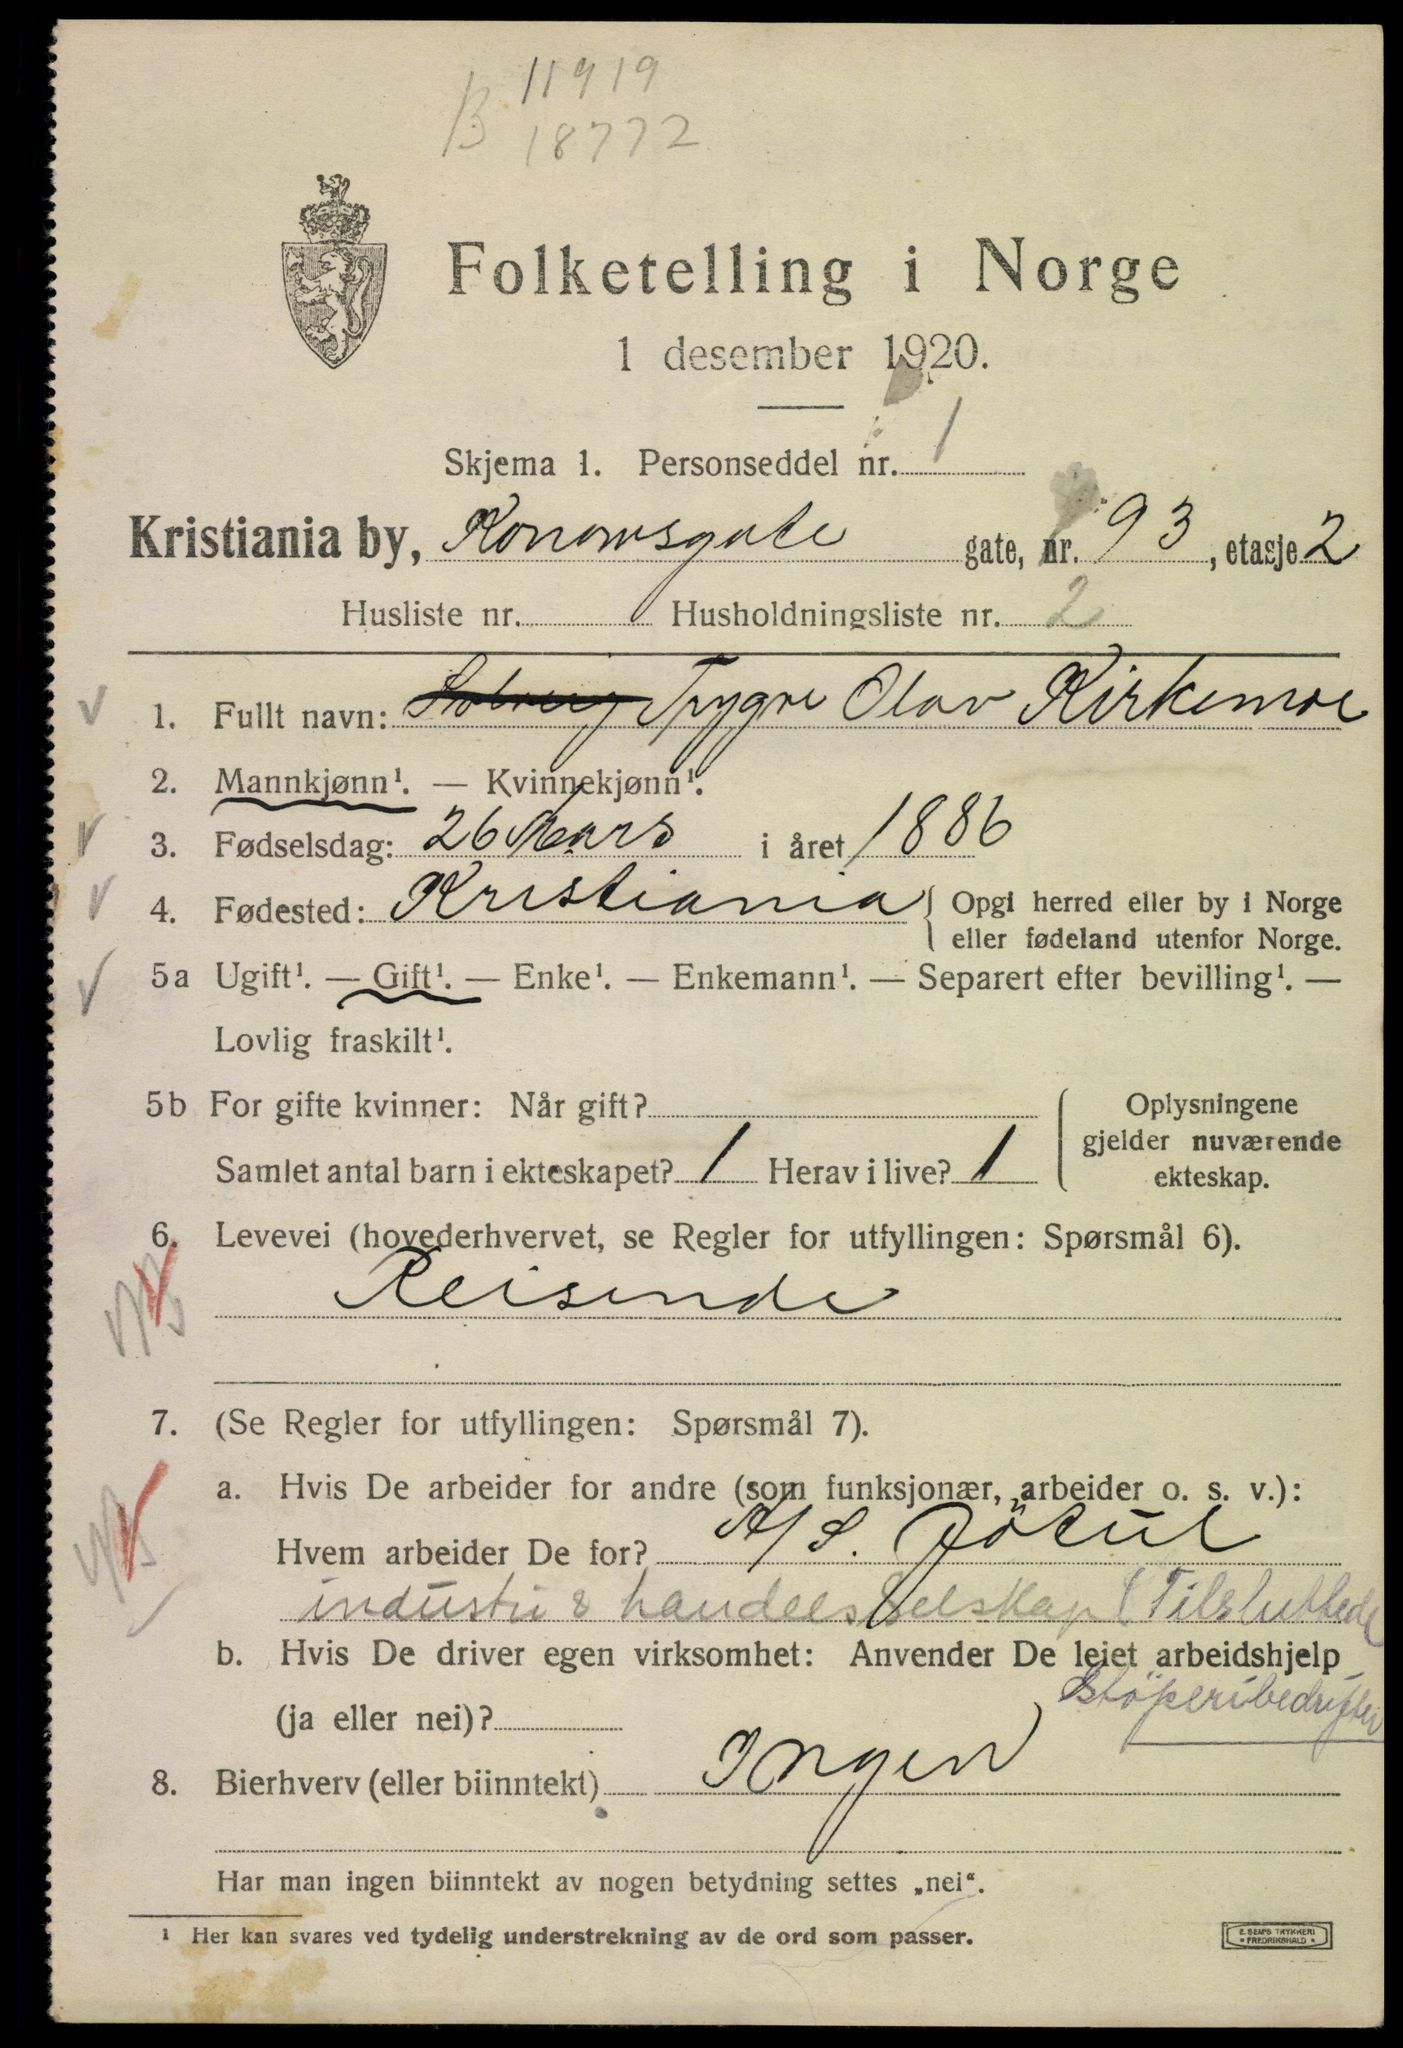 B 11919
18772
Folketelling i Norge
1 desember 1920.
Skjema 1. Personseddel nr. 1
Kristiania by, Konowsgate gate, nr. 93, etasje 2
Husliste nr. Husholdningsliste nr. 2
1. Fullt navn: Solveig Trygve Olav Kirkemoe
2. Mannkjønn¹. — Kvinnekjønn¹.
3. Fødselsdag: 26 Mars i året 1886
4. Fødested: Kristiania { Opgi herred eller by i Norge
eller fødeland utenfor Norge.
5a Ugift¹. — Gift¹. — Enke¹. — Enkemann¹. — Separert efter bevilling¹. —
Lovlig fraskilt¹.
5b For gifte kvinner: Når gift?
Samlet antal barn i ekteskapet? 1 Herav i live? 1
Oplysningene
gjelder nuværende
ekteskap.
6. Levevei (hovederhvervet, se Regler for utfyllingen: Spørsmål 6).
Reisende
7. (Se Regler for utfyllingen: Spørsmål 7).
a. Hvis De arbeider for andre (som funksjonær, arbeider o. s. v.):
Hvem arbeider De for? A/S. Jötul
industri & handelsselskap (Tilsluttede
b. Hvis De driver egen virksomhet: Anvender De leiet arbeidshjelp
støperibedrifter)
(ja eller nei)?
8. Bierhverv (eller biinntekt) Ingen
Har man ingen biinntekt av nogen betydning settes „nei“.
¹ Her kan svares ved tydelig understrekning av de ord som passer.
E. SEMS TRYKKERI
* FREDRIKSHALD *